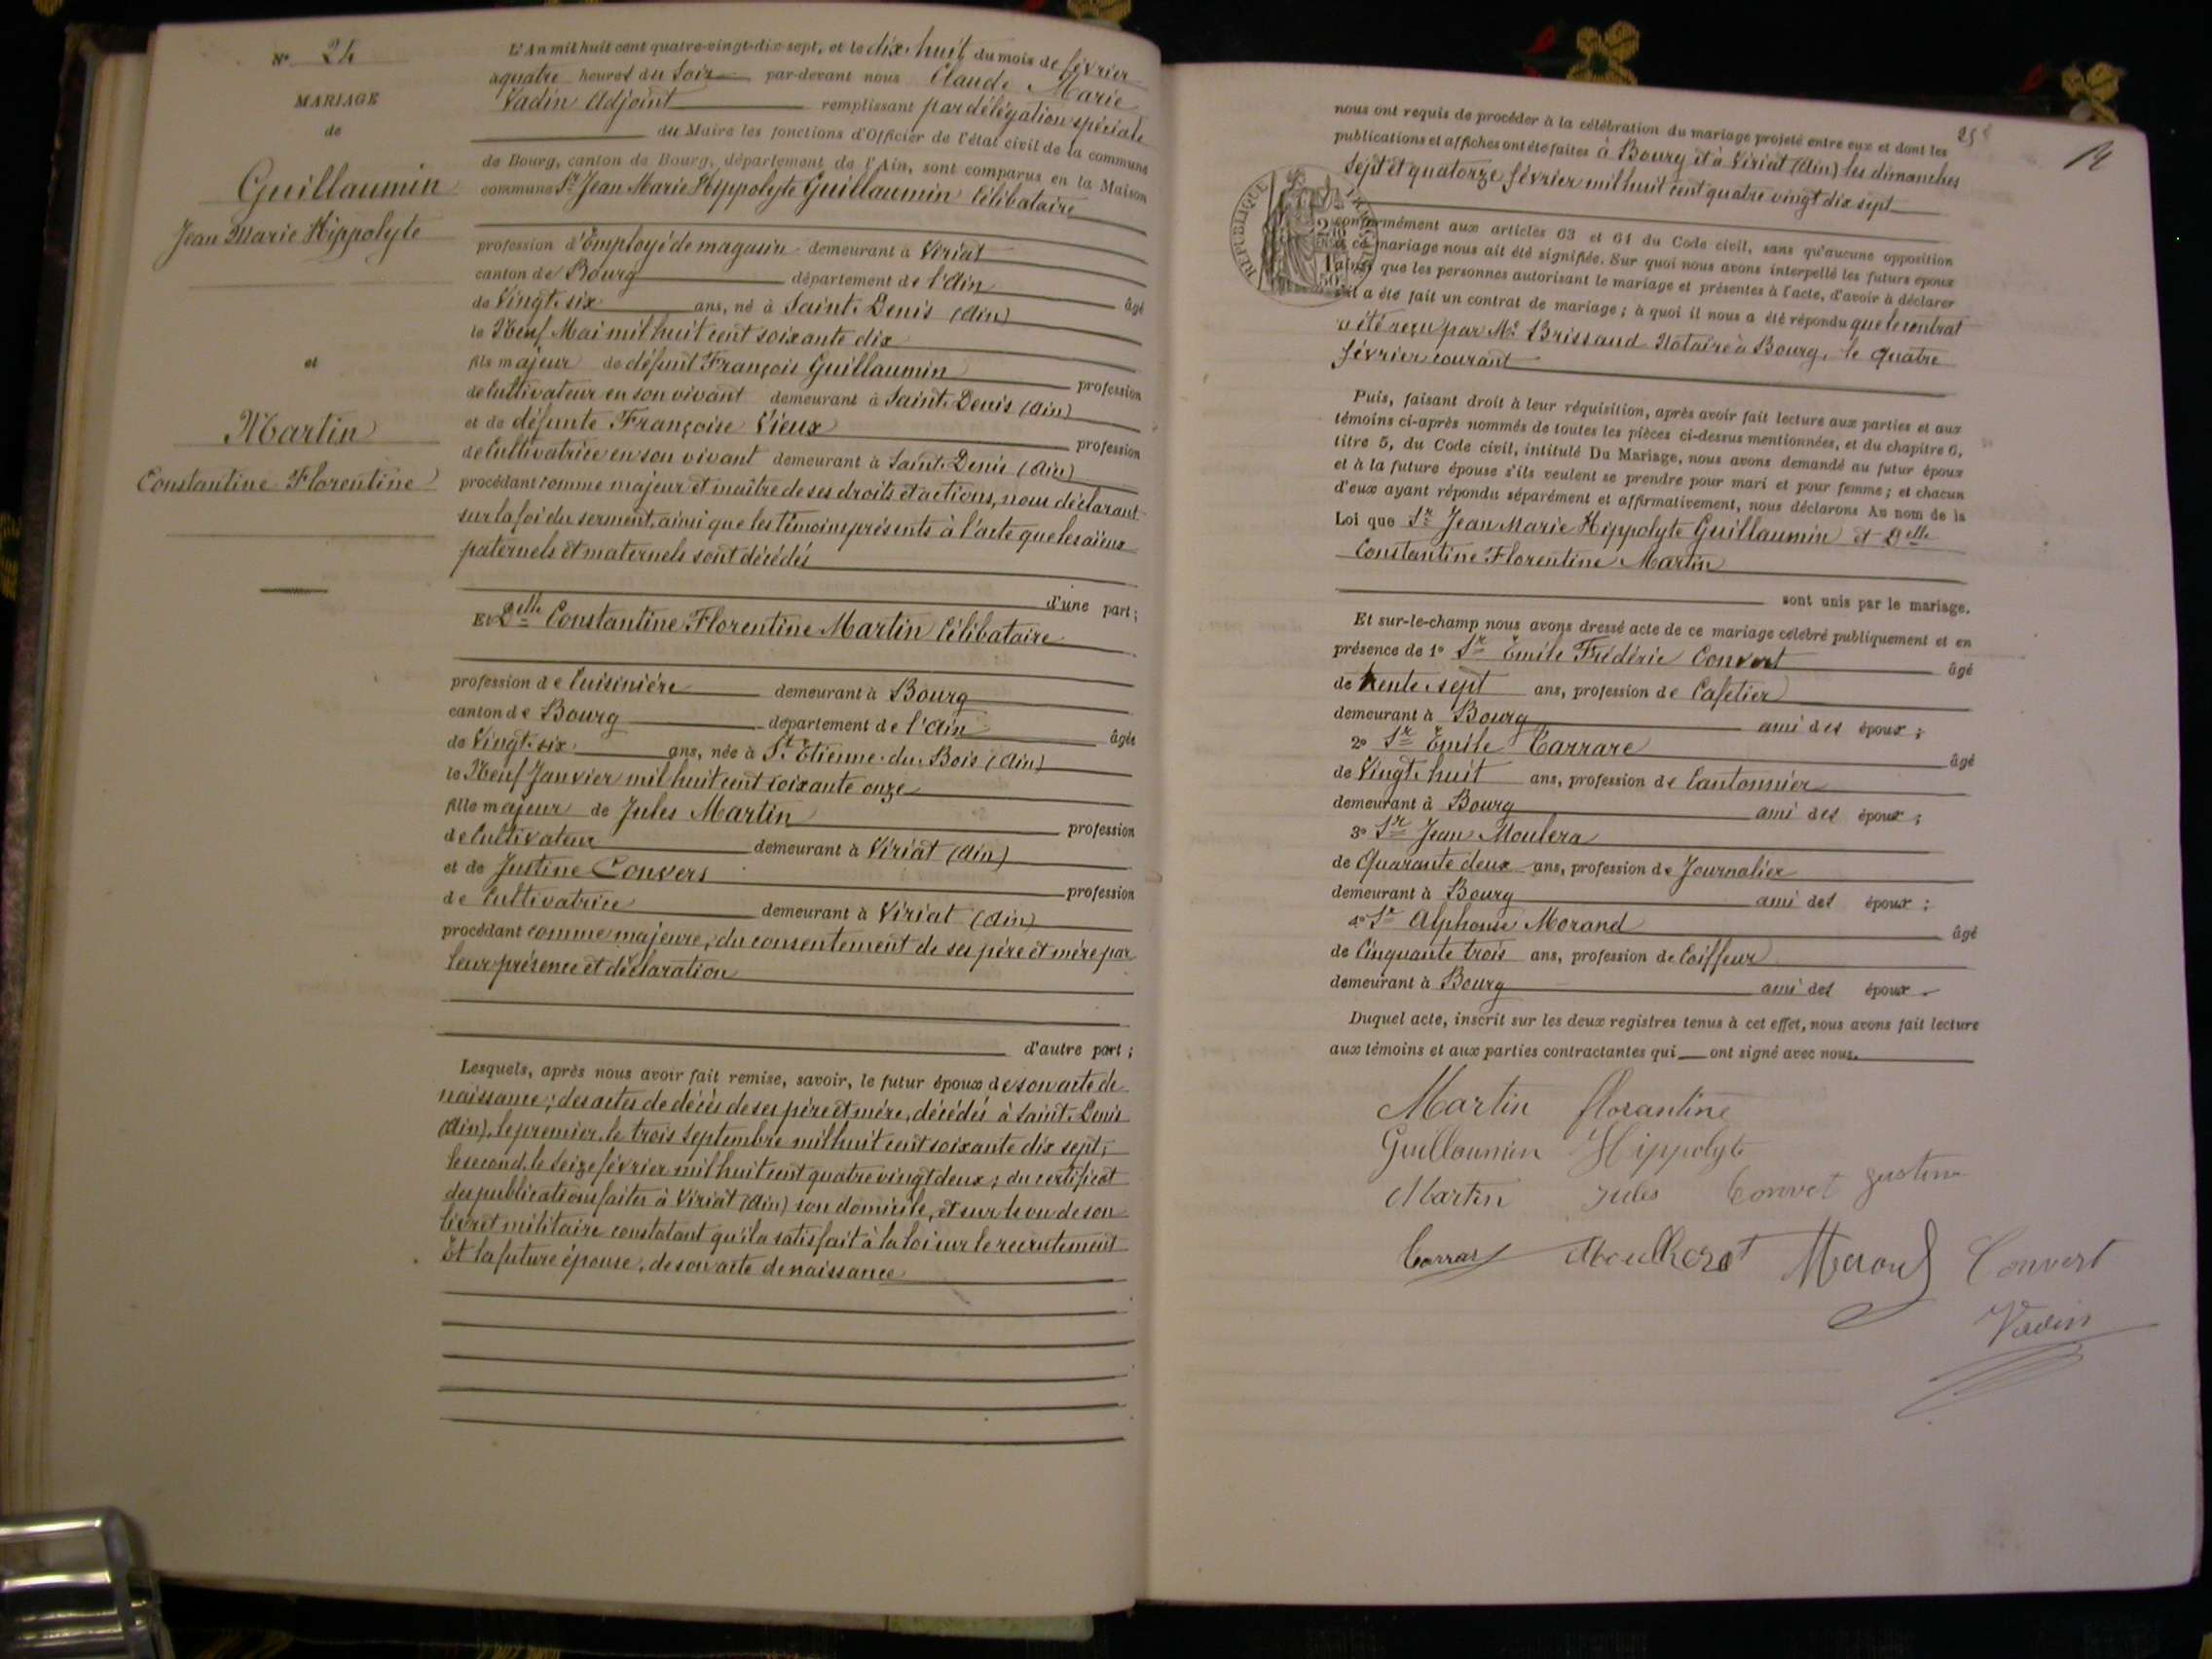 N° 24
MARIAGE
de
Guillaumin
Jean Marie Hippolyte
et
Martin
Constantine Florentine
L'An mil huit cent quatre-vingt-dix-sept, et le dix-huit du mois de février
à quatre heures du soir par-devant nous Claude Marie
Vadin Adjoint remplissant par délégation spéciale
du Maire les fonctions d'Officier de l'état civil de la commune
de Bourg, canton de Bourg, département de l'Ain, sont comparus en la Maison
commune Sr Jean Marie Hippolyte Guillaumin Célibataire
profession d'Employé de magasin demeurant à Viriat
canton de Bourg département de l'Ain âgé
de Vingt-six ans, né à Saint-Denis (Ain)
le Neuf Mai mil huit cent soixante dix
fils majeur de défunt François Guillaumin profession
de Cultivateur en son vivant demeurant à Saint-Denis (Ain)
et de défunte Françoise Vieux profession
de Cultivatrice en son vivant demeurant à Saint-Denis (Ain)
procédant comme majeur et maître de ses droits et actions, nous déclarant
sur la foi du serment, ainsi que les témoins présents à l'acte que les aïeux
paternels et maternels sont décédés
d'une part;
Et Delle Constantine Florentine Martin Célibataire
profession de Cuisinière demeurant à Bourg
canton de Bourg département de l'Ain âgée
de Vingt-six ans, née à St Etienne-du-Bois (Ain)
le Neuf Janvier mil huit cent soixante onze
fille majeur de Jules Martin profession
de Cultivateur demeurant à Viriat (Ain)
et de Justine Convers profession
de Cultivatrice demeurant à Viriat (Ain)
procédant comme majeure, du consentement de ses père et mère par
leur présence et déclaration
d'autre part;
Lesquels, après nous avoir fait remise, savoir, le futur époux de son acte de
naissance; des actes de décès de ses père et mère, décédés à Saint-Denis
(Ain), le premier, le trois Septembre mil huit cent soixante dix sept;
le second, le Seize février mil huit cent quatre vingt deux; du certificat
des publications faites à Viriat (Ain) son domicile, et sur le vu de son
livret militaire constatant qu'il a satisfait à la loi sur le recrutement
Et la future épouse, de son acte de naissance
nous ont requis de procéder à la célébration du mariage projeté entre eux et dont les
publications et affiches ont été faites à Bourg et à Viriat (Ain) les dimanches
Sept et quatorze février mil huit cent quatre vingt dix sept
conformément aux articles 63 et 64 du Code civil, sans qu'aucune opposition
à ce mariage nous ait été signifiée. Sur quoi nous avons interpellé les futurs époux
ainsi que les personnes autorisant le mariage et présentes à l'acte, d'avoir à déclarer
s'il a été fait un contrat de mariage; à quoi il nous a été répondu que le contrat
a été reçu par Me Brissaud Notaire à Bourg, le quatre
février courant
Puis, faisant droit à leur réquisition, après avoir fait lecture aux parties et aux
témoins ci-après nommés de toutes les pièces ci-dessus mentionnées, et du chapitre 6,
titre 5, du Code civil, intitulé Du Mariage, nous avons demandé au futur époux
et à la future épouse s'ils veulent se prendre pour mari et pour femme; et chacun
d'eux ayant répondu séparément et affirmativement, nous déclarons Au nom de la
Loi que Sr Jean Marie Hippolyte Guillaumin et Delle
Constantine Florentine Martin
sont unis par le mariage.
Et sur-le-champ nous avons dressé acte de ce mariage célébré publiquement et en
présence de 1° Sr Émile Frédéric Convert âgé
de trente-sept ans, profession de Cafetier
demeurant à Bourg ami des époux;
2° Sr Émile Carrare âgé
de Vingt-huit ans, profession de Cantonnier
demeurant à Bourg ami des époux;
3° Sr Jean Moulera
de Quarante deux ans, profession de Journalier
demeurant à Bourg ami des époux;
4° Sr Alphonse Morand âgé
de Cinquante trois ans, profession de Coiffeur
demeurant à Bourg ami des époux.
Duquel acte, inscrit sur les deux registres tenus à cet effet, nous avons fait lecture
aux témoins et aux parties contractantes qui ont signé avec nous.
Martin florantine
Guillaumin Hippolyte
Martin Jules Convet Justine
Convert
Vadin